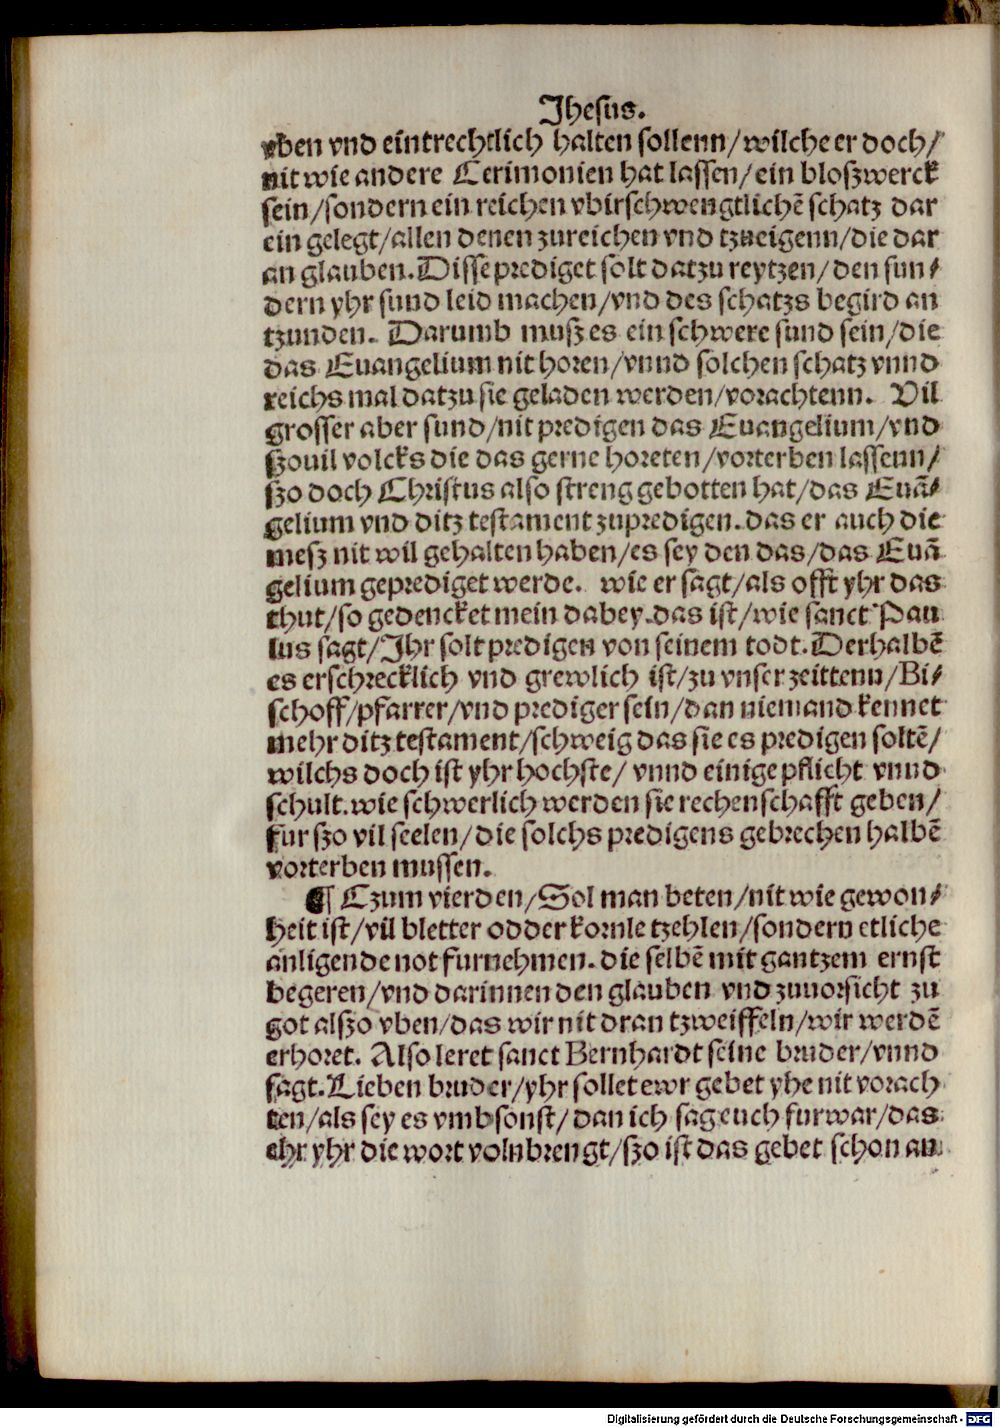 Jhesus.
vben vnd eintrechtlich halten sollenn/wilche er doch/
nit wie andere Cerimonien hat lassen/ein bloszwerck
sein/sondern ein reichen vbirschwengtlichē schatz dar
ein gelegt/allen denen zureichen vnd tzueigenn/die dar
an glauben.Disse prediget solt datzu reytzen/den sun/
dern yhr sund leid machen/vnd des schatzs begird an
tzunden. Darumb musz es ein schwere sund sein/die
das Euangelium nit horen/vnnd solchen schatz vnnd
reichs mal datzu sie geladen werden/vorachtenn. Vil
grosser aber sund/nit predigen das Euangelium/vnd
szouil volcks die das gerne horeten/vorterben lassenn/
szo doch Christus also streng gebotten hat/das Euā/
gelium vnd ditz testament zupredigen.das er auch die
mesz nit wil gehalten haben/es sey den das/das Euā
gelium geprediget werde. wie er sagt/als offt yhr das
thut/so gedencket mein dabey.das ist/wie sanct Pau
lus sagt/Jhr solt predigen von seinem todt.Derhalbē
es erschrecklich vnd grewlich ist/zu vnser zeittenn/Bi/
schoff/pfarrer/vnd prediger sein/dan niemand kennet
mehr ditz testament/schweig das sie es predigen soltē/
wilchs doch ist yhr hochste/ vnnd einige pflicht vnnd
schult.wie schwerlich werden sie rechenschafft geben/
fur szo vil seelen/die solchs predigens gebrechen halbē
vorterben mussen.
¶ Czum vierden/Sol man beten/nit wie gewon/
heit ist/vil bletter odder kornle tzehlen/sondern etliche
anligende not furnehmen.die selbē mit gantzem ernst
begeren/vnd darinnen den glauben vnd zuuorsicht zu
got alszo vben/das wir nit dran tzweiffeln/wir werdē
erhoret. Also leret sanct Bernhardt seine bruder/vnnd
sagt.Lieben bruder/yhr sollet ewr gebet yhe nit vorach
ten/als sey es vmbsonst/dan ich sag euch furwar/das
ehr yhr die wort volnbrengt/szo ist das gebet schon an
Digitalisierung gefördert durch die Deutsche Forschungsgemeinschaft - DFG